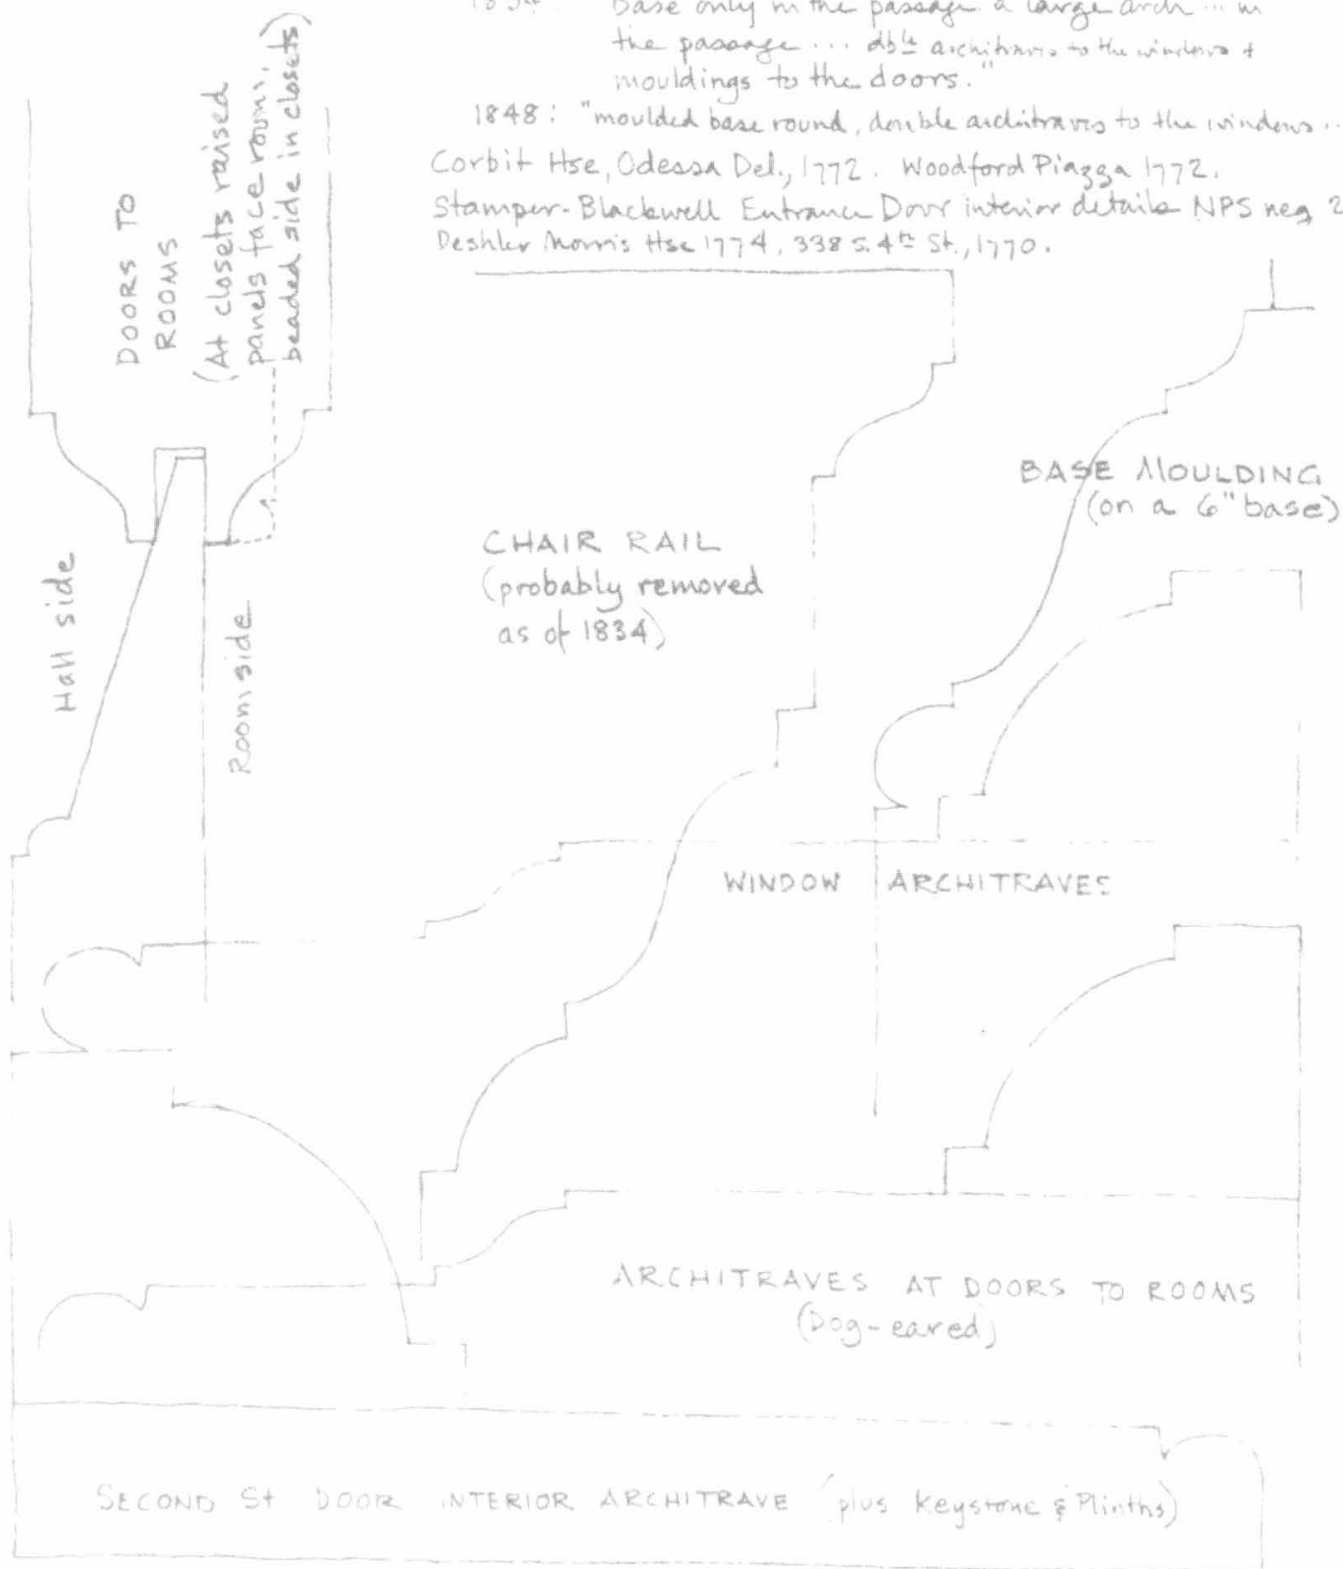 Base only in the passage a large arch ... in
the passage ... dble architraves to the windows &
mouldings to the doors."
1848: "moulded base round, double architraves to the windows ..
Corbit Hse, Odessa Del., 1772. Woodford Piazza 1772.
Stamper-Blackwell Entrance Door interior details NPS neg 2
Deshler Morris Hse 1774, 338 S. 4th St., 1770.
DOORS TO
ROOMS
(At closets raised
panels face rooms,
beaded side in closets)
Hall side
Room side
CHAIR RAIL
(probably removed
as of 1834)
BASE MOULDING
(on a 6" base)
WINDOW ARCHITRAVES
ARCHITRAVES AT DOORS TO ROOMS
(Dog-eared)
SECOND St DOOR INTERIOR ARCHITRAVE (plus Keystone & Plinths)